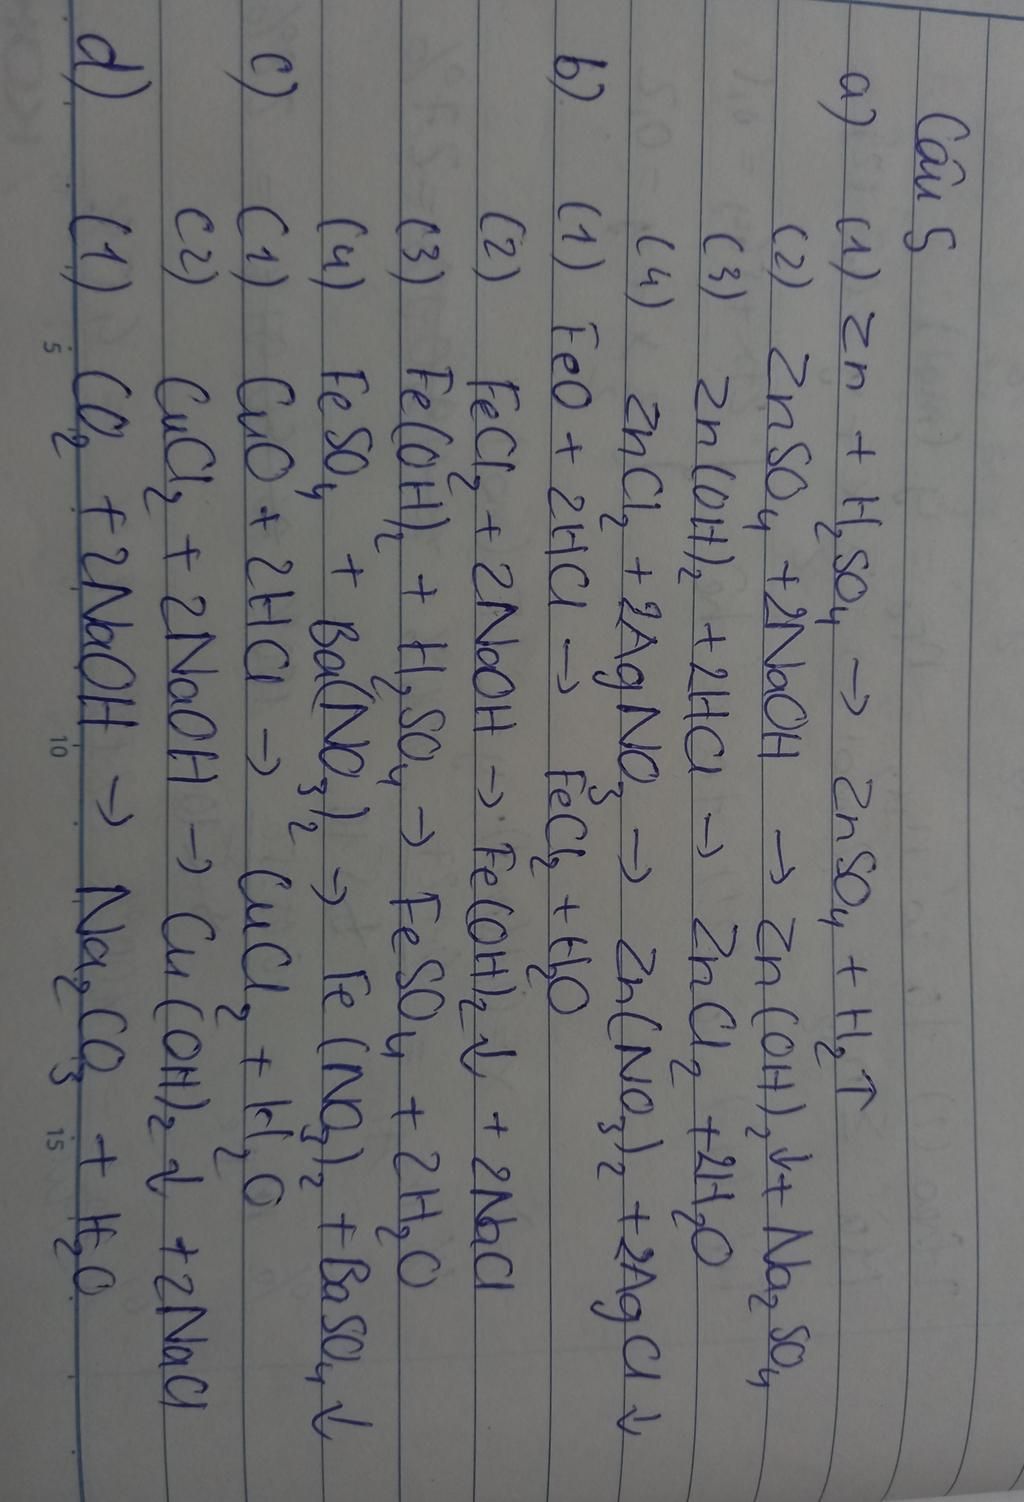 Câu 5
a) (1) Zn + H₂SO₄ → ZnSO₄ + H₂↑
(2) ZnSO₄ + 2NaOH → Zn(OH)₂↓ + Na₂SO₄
(3) Zn(OH)₂ + 2HCl → ZnCl₂ + 2H₂O
(4) ZnCl₂ + 2AgNO₃ → Zn(NO₃)₂ + 2AgCl↓
b) (1) FeO + 2HCl → FeCl₂ + H₂O
(2) FeCl₂ + 2NaOH → Fe(OH)₂↓ + 2NaCl
(3) Fe(OH)₂ + H₂SO₄ → FeSO₄ + 2H₂O
(4) FeSO₄ + Ba(NO₃)₂ → Fe(NO₃)₂ + BaSO₄↓
c) (1) CuO + 2HCl → CuCl₂ + H₂O
(2) CuCl₂ + 2NaOH → Cu(OH)₂↓ + 2NaCl
d) (1) CO₂ + 2NaOH → Na₂CO₃ + H₂O
5 10 15